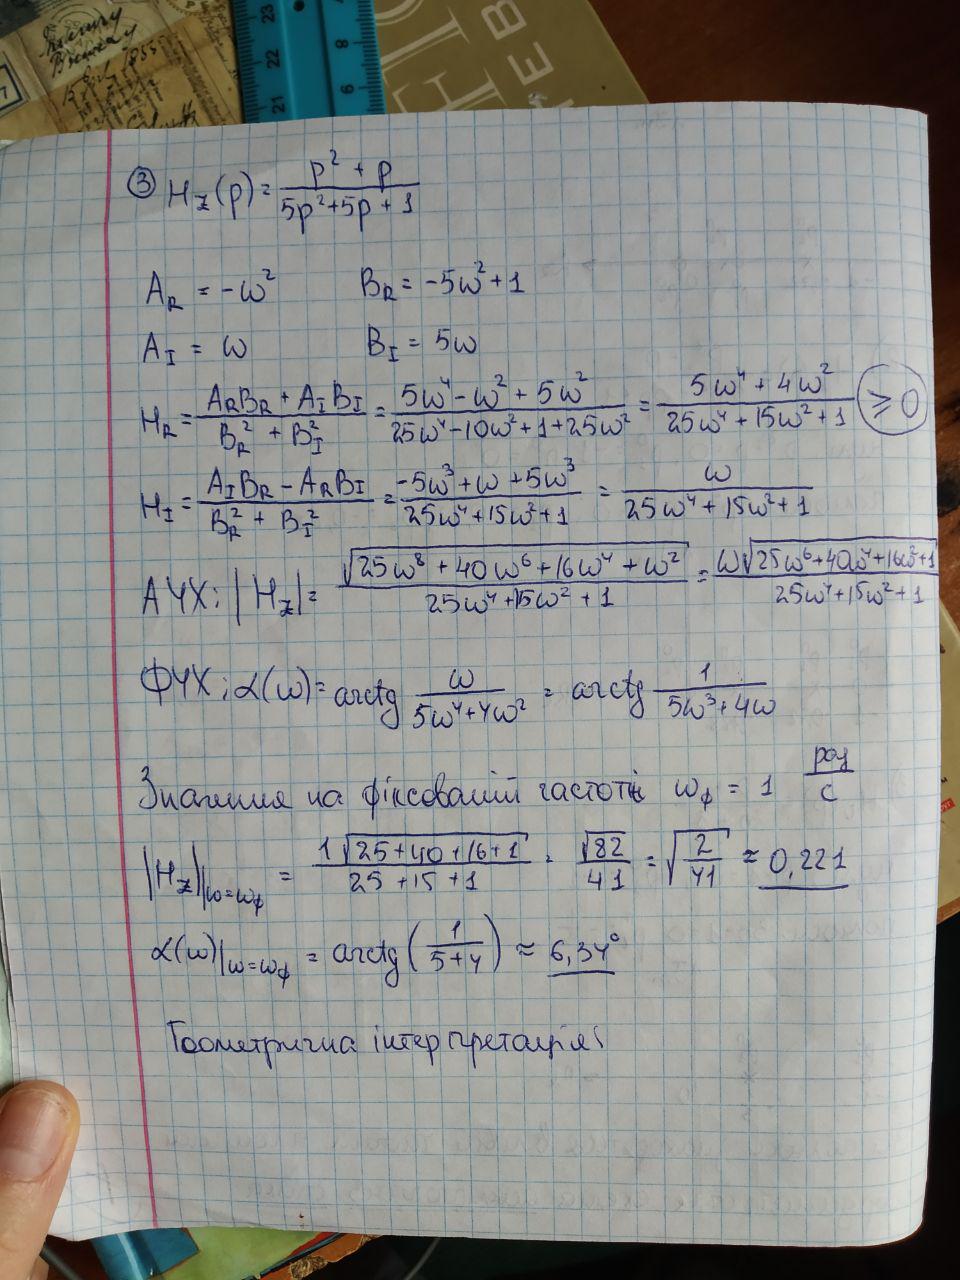 23
22
21
8
6
НЕВ
③ H_Z(p) = (p² + p)/(5p² + 5p + 1)
A_R = -ω² B_R = -5ω² + 1
A_I = ω B_I = 5ω
H_R = (A_R B_R + A_I B_I)/(B_R² + B_I²) = (5ω⁴ - ω² + 5ω²)/(25ω⁴ - 10ω² + 1 + 25ω²) = (5ω⁴ + 4ω²)/(25ω⁴ + 15ω² + 1) ≥ 0
H_I = (A_I B_R - A_R B_I)/(B_R² + B_I²) = (-5ω³ + ω + 5ω³)/(25ω⁴ + 15ω² + 1) = ω/(25ω⁴ + 15ω² + 1)
АЧХ: |H_Z| = √(25ω⁸ + 40ω⁶ + 16ω⁴ + ω²)/(25ω⁴ + 15ω² + 1) = ω√(25ω⁶ + 40ω⁴ + 16ω² + 1)/(25ω⁴ + 15ω² + 1)
ФЧХ: α(ω) = arctg ω/(5ω⁴ + 4ω²) = arctg 1/(5ω³ + 4ω)
Значення на фіксованій частоті ω_ф = 1 рад/с
|H_Z||ω=ω_ф = 1√(25 + 40 + 16 + 1)/(25 + 15 + 1) = √82/41 = √(2/41) ≈ 0,221
α(ω)|ω=ω_ф = arctg(1/(5+4)) ≈ 6,34°
Геометрична інтерпретація: